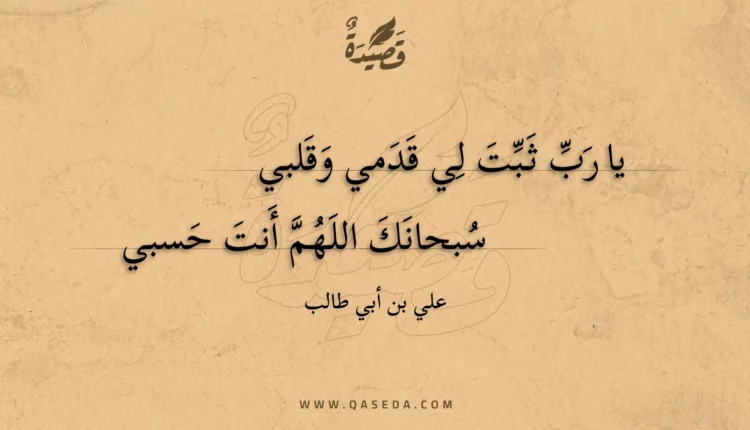 قَصِيدَةٌ
يا رَبِّ ثَبِّتَ لِي قَدَمي وَقَلبي
سُبحانَكَ اللَهُمَّ أَنتَ حَسبي
علي بن أبي طالب
WWW.QASEDA.COM